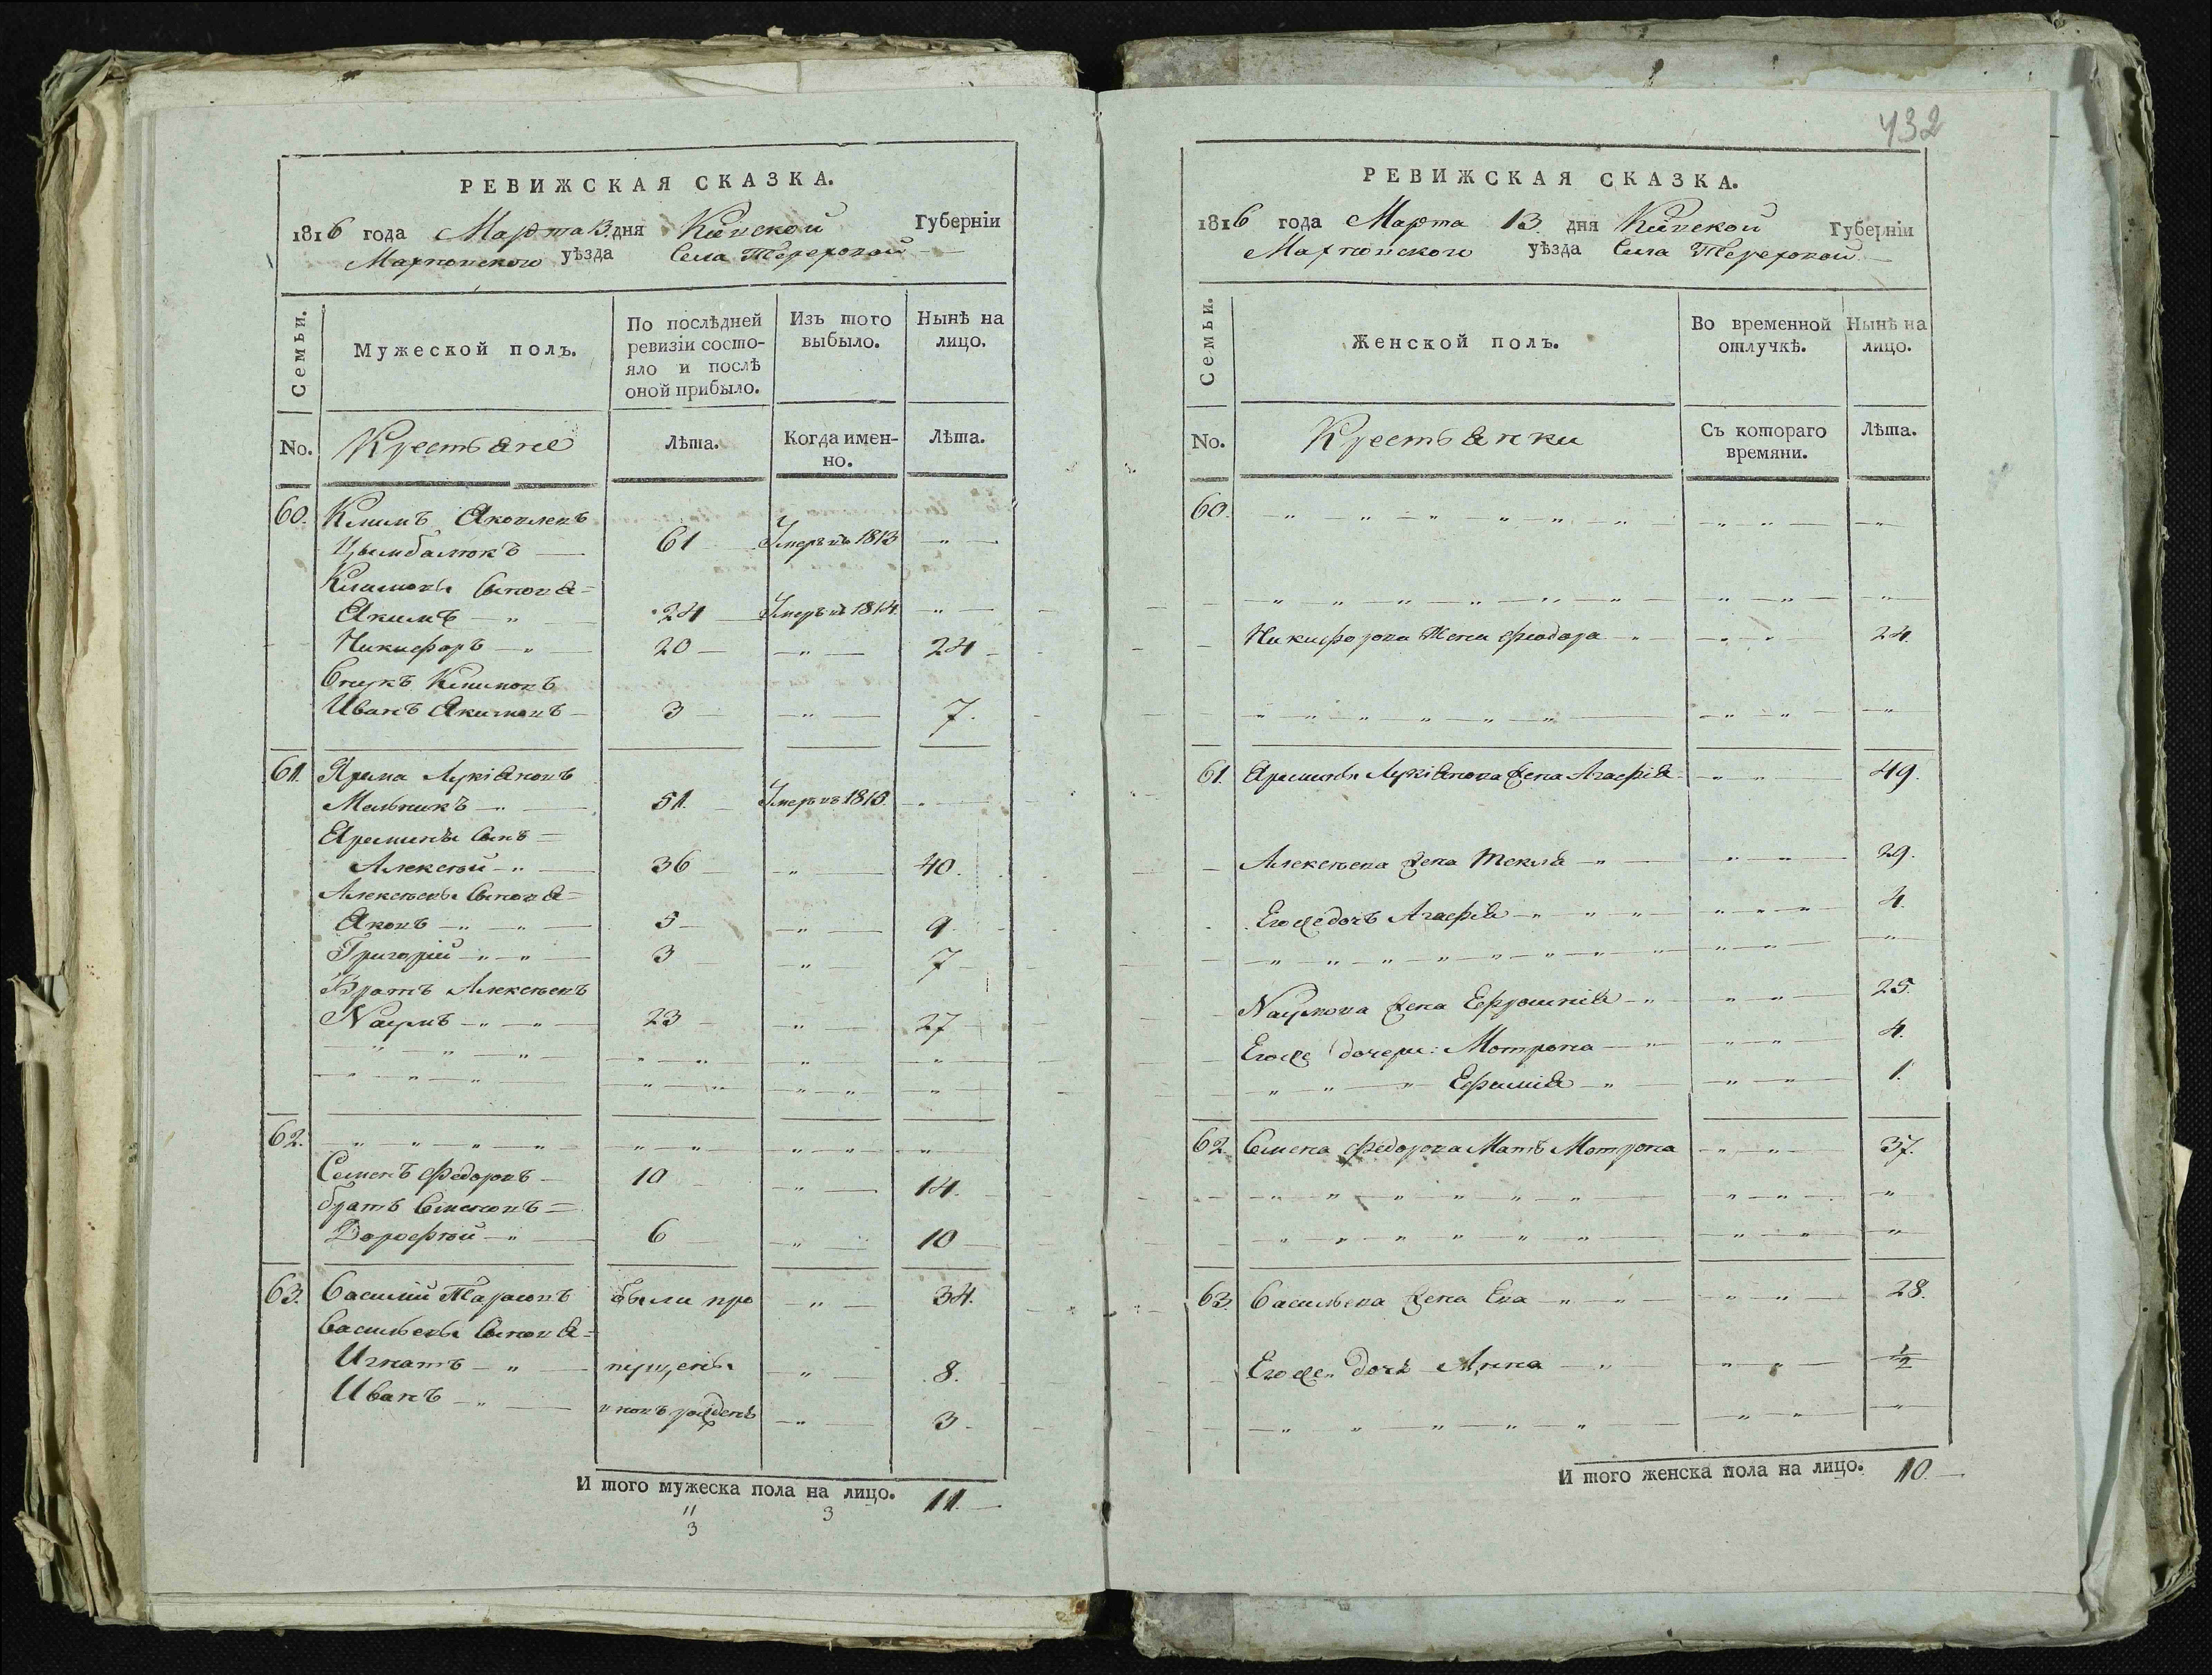 РЕВИЖСКАЯ СКАЗКА.
1816 года Марта 13 дня Кіевской Губерніи
Махновского уѣзда Села Терехової
Семьи.
Мужеской полъ.
По послѣдней ревизіи состо-
яло и послѣ
оной прибыло.
Изъ того
выбыло.
Нынѣ на
лицо.
No.
Крестьяне
Лѣта.
Когда имен-
но.
Лѣта.
60. Климъ Яковлевъ
Цымбалюкъ 61 Умеръ въ 1813
Климовы Сыновя
Якимъ 24 Умеръ въ 1814
Никифоръ 20 24
Внукъ Климовъ
Иванъ Якимовъ 3 7.
61. Ярема Лукіановъ
Мельникъ 51. Умеръ въ 1813.
Яремины Сынъ
Алексѣй 36 40.
Алексѣевы Сыновя
Яковъ 5 9
Григорій 3 7
Братъ Алексѣевъ
Наумъ 23 27
62.
Семенъ Федоровъ 10 14.
братъ Семеновъ
Дорофѣй 6 10
63. Василий Тарасовъ были про 34.
Васильевы Сыновя
Игнатъ пущены 8.
Иванъ вновь рожденъ 3
И того мужеска пола на лицо. 11
11 3
3
432
РЕВИЖСКАЯ СКАЗКА.
1816 года Марта 13. дня Кіевской Губерніи
Махновского уѣзда Села Терехової
Семьи.
Женской полъ.
Во временной
отлучкѣ.
Нынѣ на
лицо.
No.
Крестьянки
Съ котораго
времяни.
Лѣта.
60.
Никифорова Жена Феодора 24.
61. Яремины Лукіанова жена Агафія 49.
Алексѣева жена Текля 29.
Егоже дочь Агафія 4.
Наумова жена Ефросинія 25.
Егоже дочери: Мотрона 4.
Ефимія 1.
62. Семена Федорова Мать Мотрона 37.
63. Васильева жена Ева 28.
Егоже дочь Анна 1/2
И того женска пола на лицо. 10.